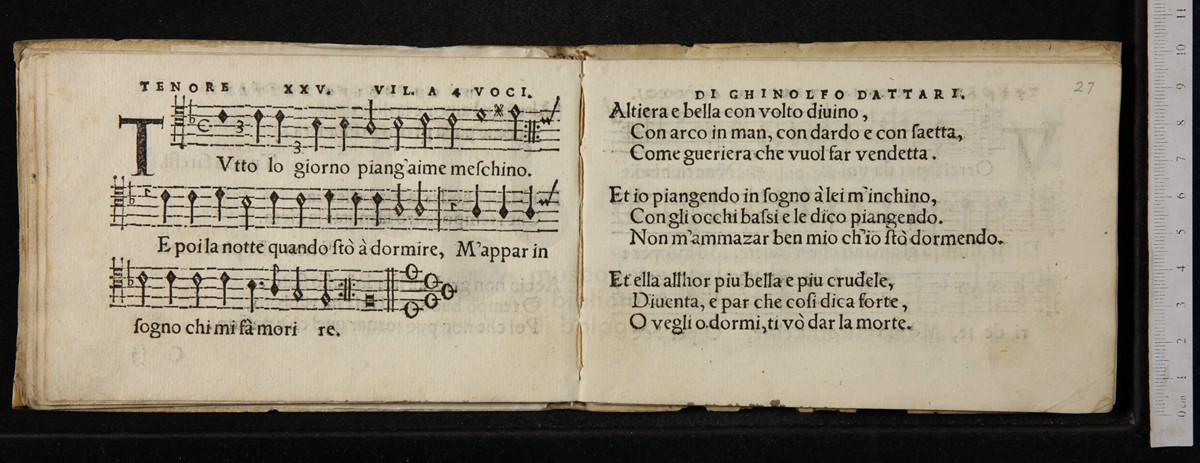 TENORE XXV. VIL. A 4 VOCI.
TVtto lo giorno piang'aime meſchino.
E poi la notte quando ſtò à dormire, M'appar in
ſogno chi mi fà mori re.
DI GHINOLFO DATTARI.
27
Altiera e bella con volto diuino,
Con arco in man, con dardo e con ſaetta,
Come gueriera che vuol far vendetta.
Et io piangendo in ſogno à lei m'inchino,
Con gli occhi baſsi e le dico piangendo.
Non m'ammazar ben mio ch'io ſtò dormendo.
Et ella allhor piu bella e piu crudele,
Diuenta, e par che coſi dica forte,
O vegli o dormi, ti vò dar la morte.
0 cm 1 2 3 4 5 6 7 8 9 10 11